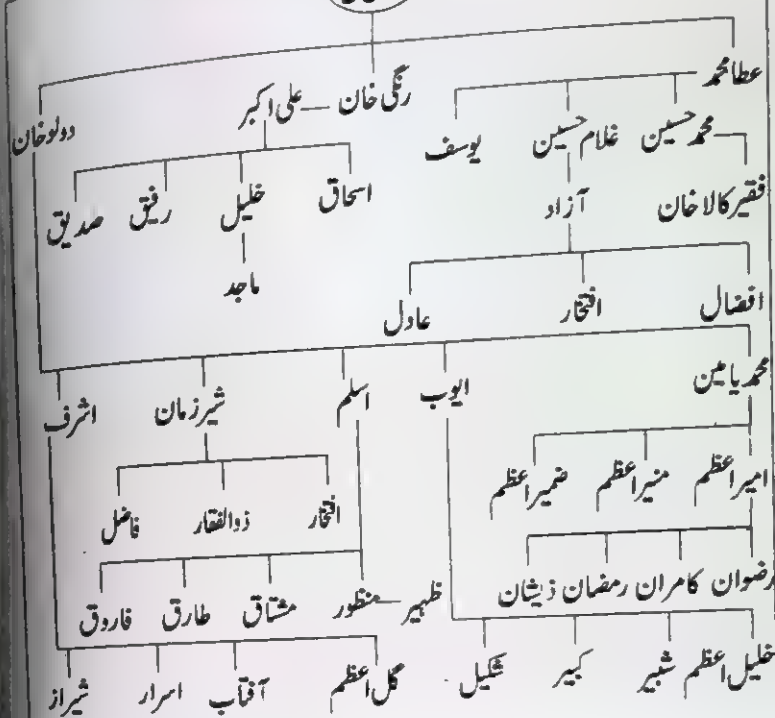 عطا محمد
رنگی خان — علی اکبر
دولو خان
محمد حسین غلام حسین یوسف
فقیر کالا خان
آزاد
اسحاق خلیل رفیق صدیق
ماجد
افضال افتخار عادل
محمد یامین ایوب اسلم شیر زمان اشرف
امیر اعظم منیر اعظم ضمیر اعظم
افتخار ذوالفقار فاضل
رضوان کامران رمضان ذیشان
ظہیر — منظور مشتاق طارق فاروق
خلیل اعظم شبیر کبیر شکیل
گل اعظم آفتاب اسرار شیراز